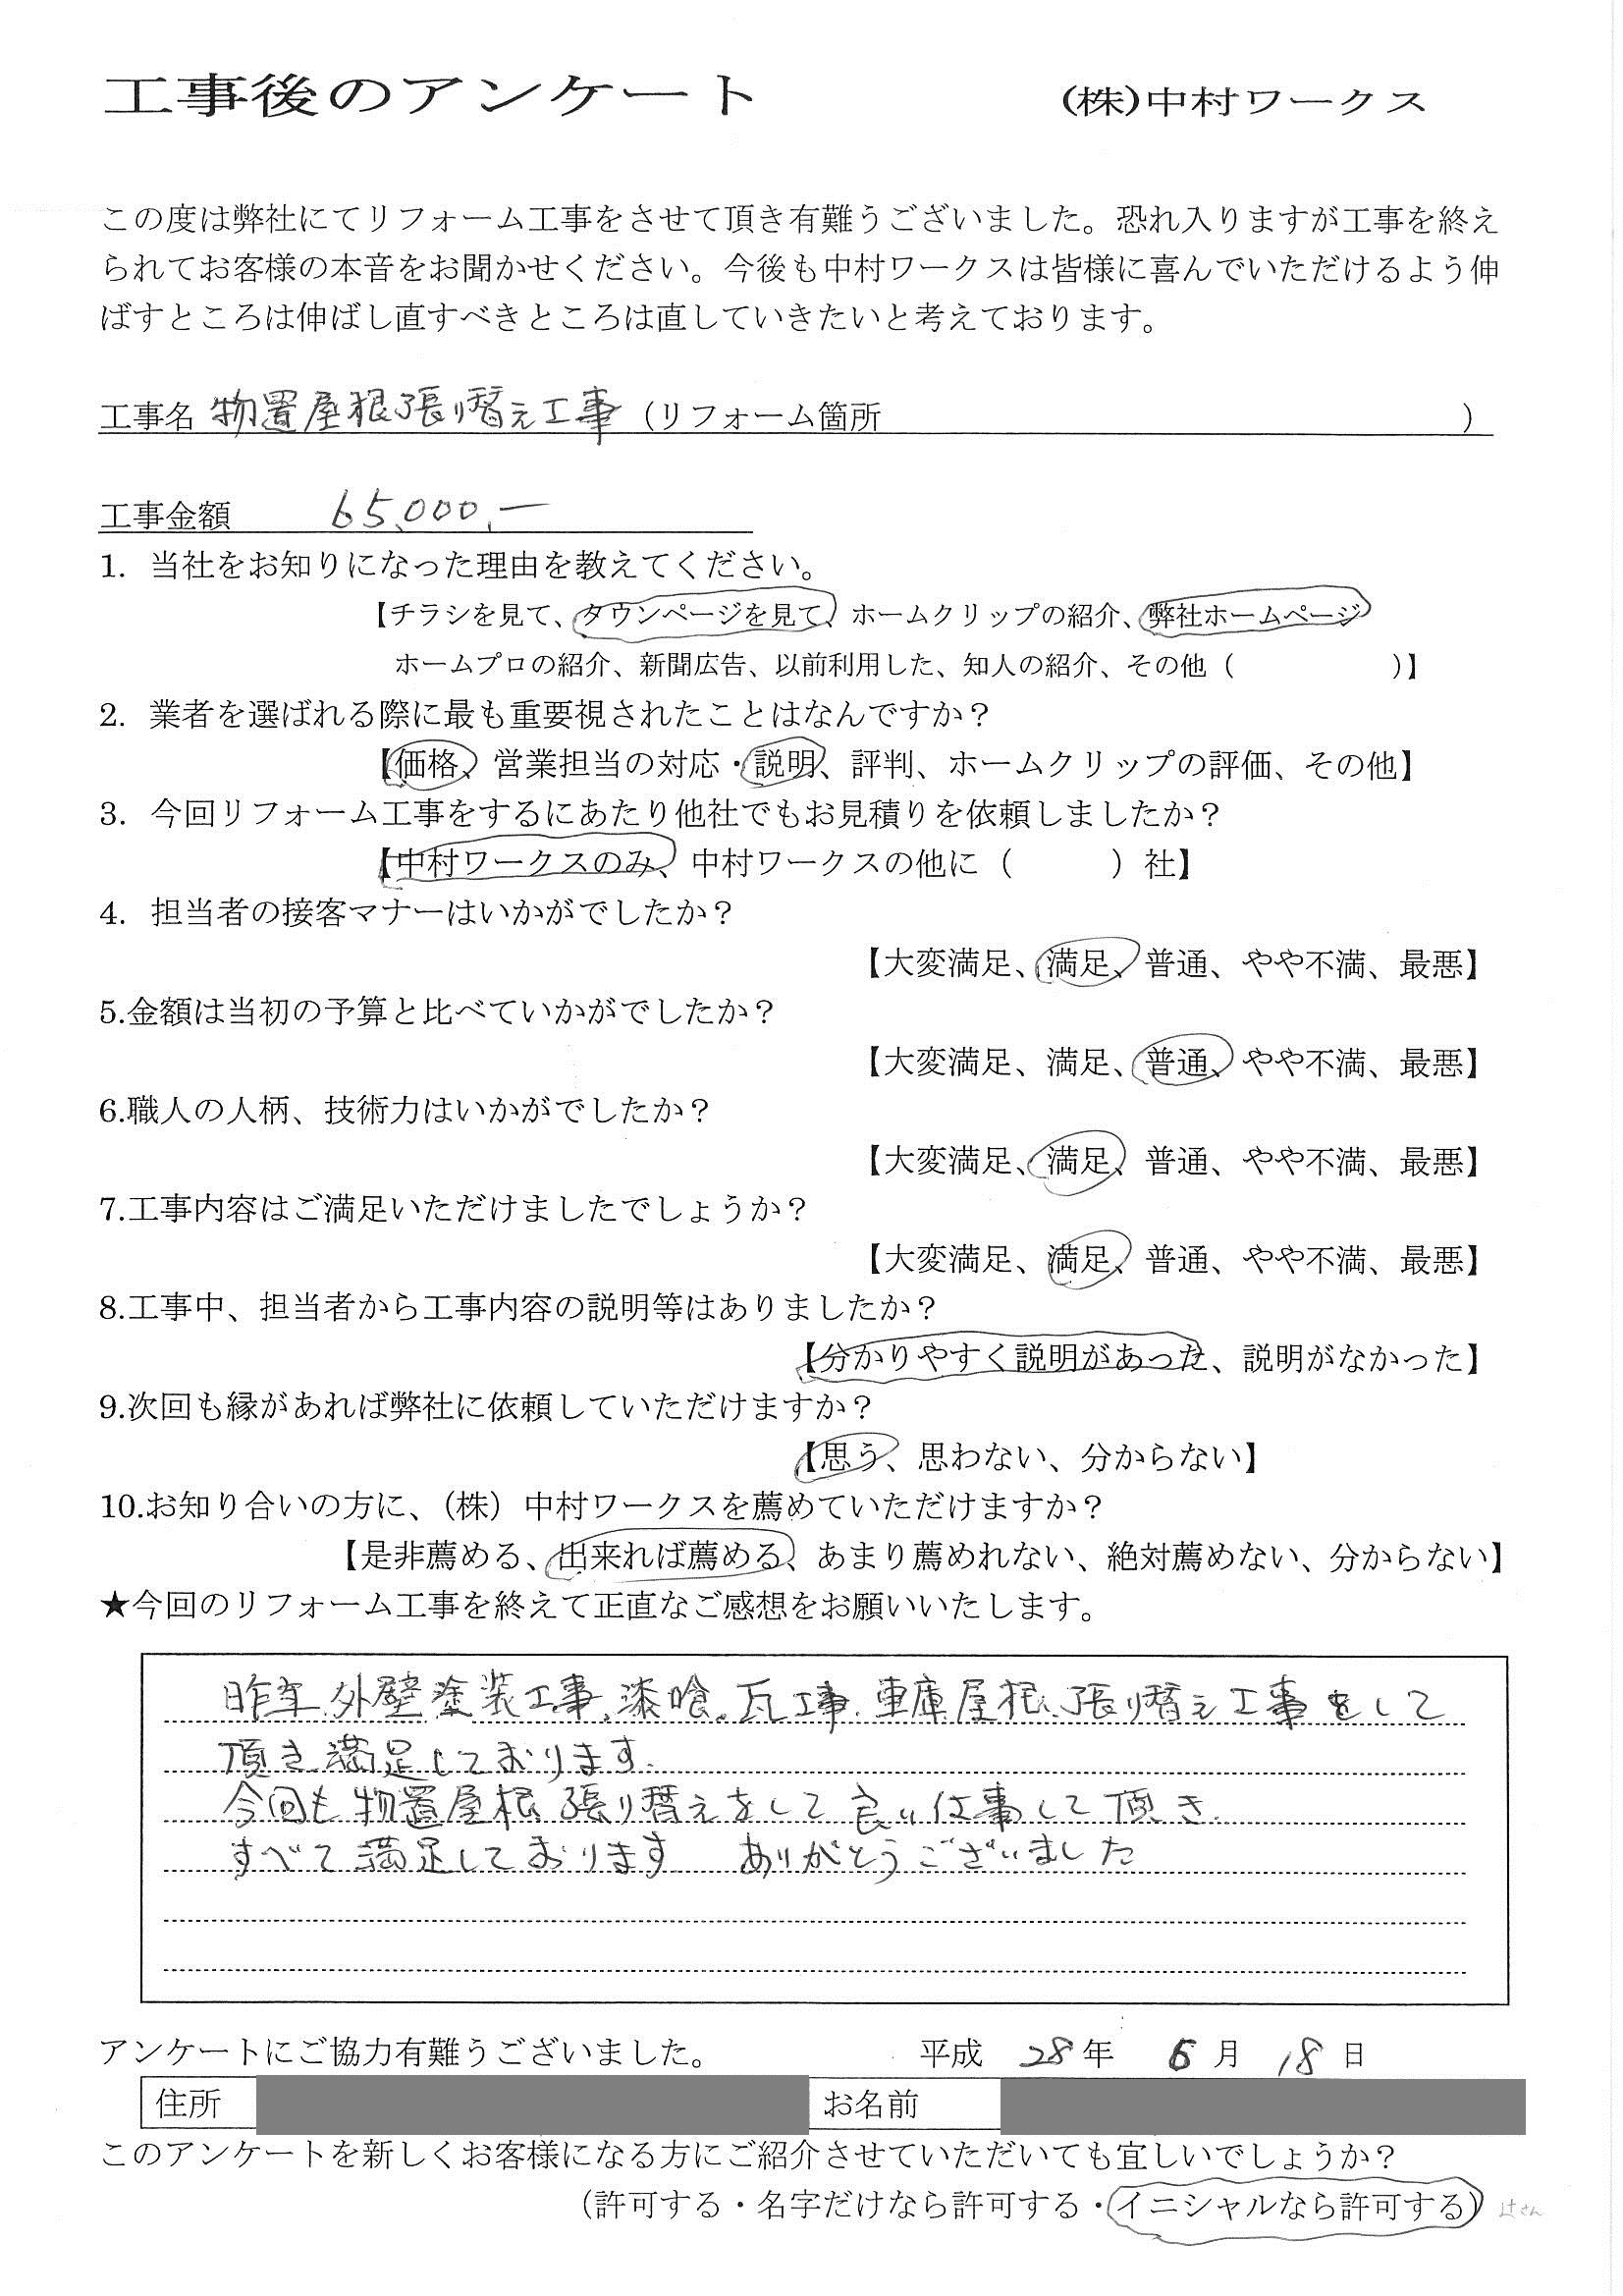 工事後のアンケート (株)中村ワークス
この度は弊社にてリフォーム工事をさせて頂き有難うございました。恐れ入りますが工事を終え
られてお客様の本音をお聞かせください。今後も中村ワークスは皆様に喜んでいただけるよう伸
ばすところは伸ばし直すべきところは直していきたいと考えております。
工事名 物置屋根張り替え工事 (リフォーム箇所 )
工事金額 65,000,―
1. 当社をお知りになった理由を教えてください。
【チラシを見て、タウンページを見て、ホームクリップの紹介、弊社ホームページ
ホームプロの紹介、新聞広告、以前利用した、知人の紹介、その他 ( )】
2. 業者を選ばれる際に最も重要視されたことはなんですか?
【価格、営業担当の対応・説明、評判、ホームクリップの評価、その他】
3. 今回リフォーム工事をするにあたり他社でもお見積りを依頼しましたか?
【中村ワークスのみ、中村ワークスの他に ( ) 社】
4. 担当者の接客マナーはいかがでしたか?
【大変満足、満足、普通、やや不満、最悪】
5.金額は当初の予算と比べていかがでしたか?
【大変満足、満足、普通、やや不満、最悪】
6.職人の人柄、技術力はいかがでしたか?
【大変満足、満足、普通、やや不満、最悪】
7.工事内容はご満足いただけましたでしょうか?
【大変満足、満足、普通、やや不満、最悪】
8.工事中、担当者から工事内容の説明等はありましたか?
【分かりやすく説明があった、説明がなかった】
9.次回も縁があれば弊社に依頼していただけますか?
【思う、思わない、分からない】
10.お知り合いの方に、(株) 中村ワークスを薦めていただけますか?
【是非薦める、出来れば薦める、あまり薦めれない、絶対薦めない、分からない】
★今回のリフォーム工事を終えて正直なご感想をお願いいたします。
昨年、外壁塗装工事、漆喰、瓦工事、車庫屋根張り替え工事をして
頂き満足しております。
今回も物置屋根張り替えをして良い仕事して頂き、
すべて満足しております ありがとうございました
アンケートにご協力有難うございました。 平成 28 年 6 月 18 日
住所 お名前
このアンケートを新しくお客様になる方にご紹介させていただいても宜しいでしょうか?
(許可する・名字だけなら許可する・イニシャルなら許可する) 辻さん